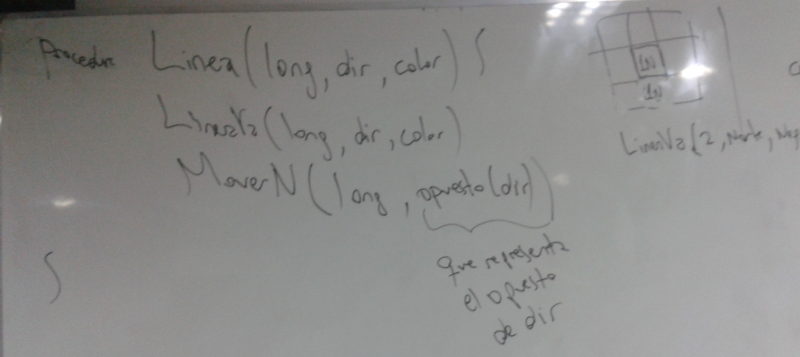 procedure Linea(long, dir, color) {
LineaVa(long, dir, color)
MoverN(long, opuesto(dir))
}
que representa
el opuesto
de dir
1N
1N
LineaVa(2, Norte, Neg